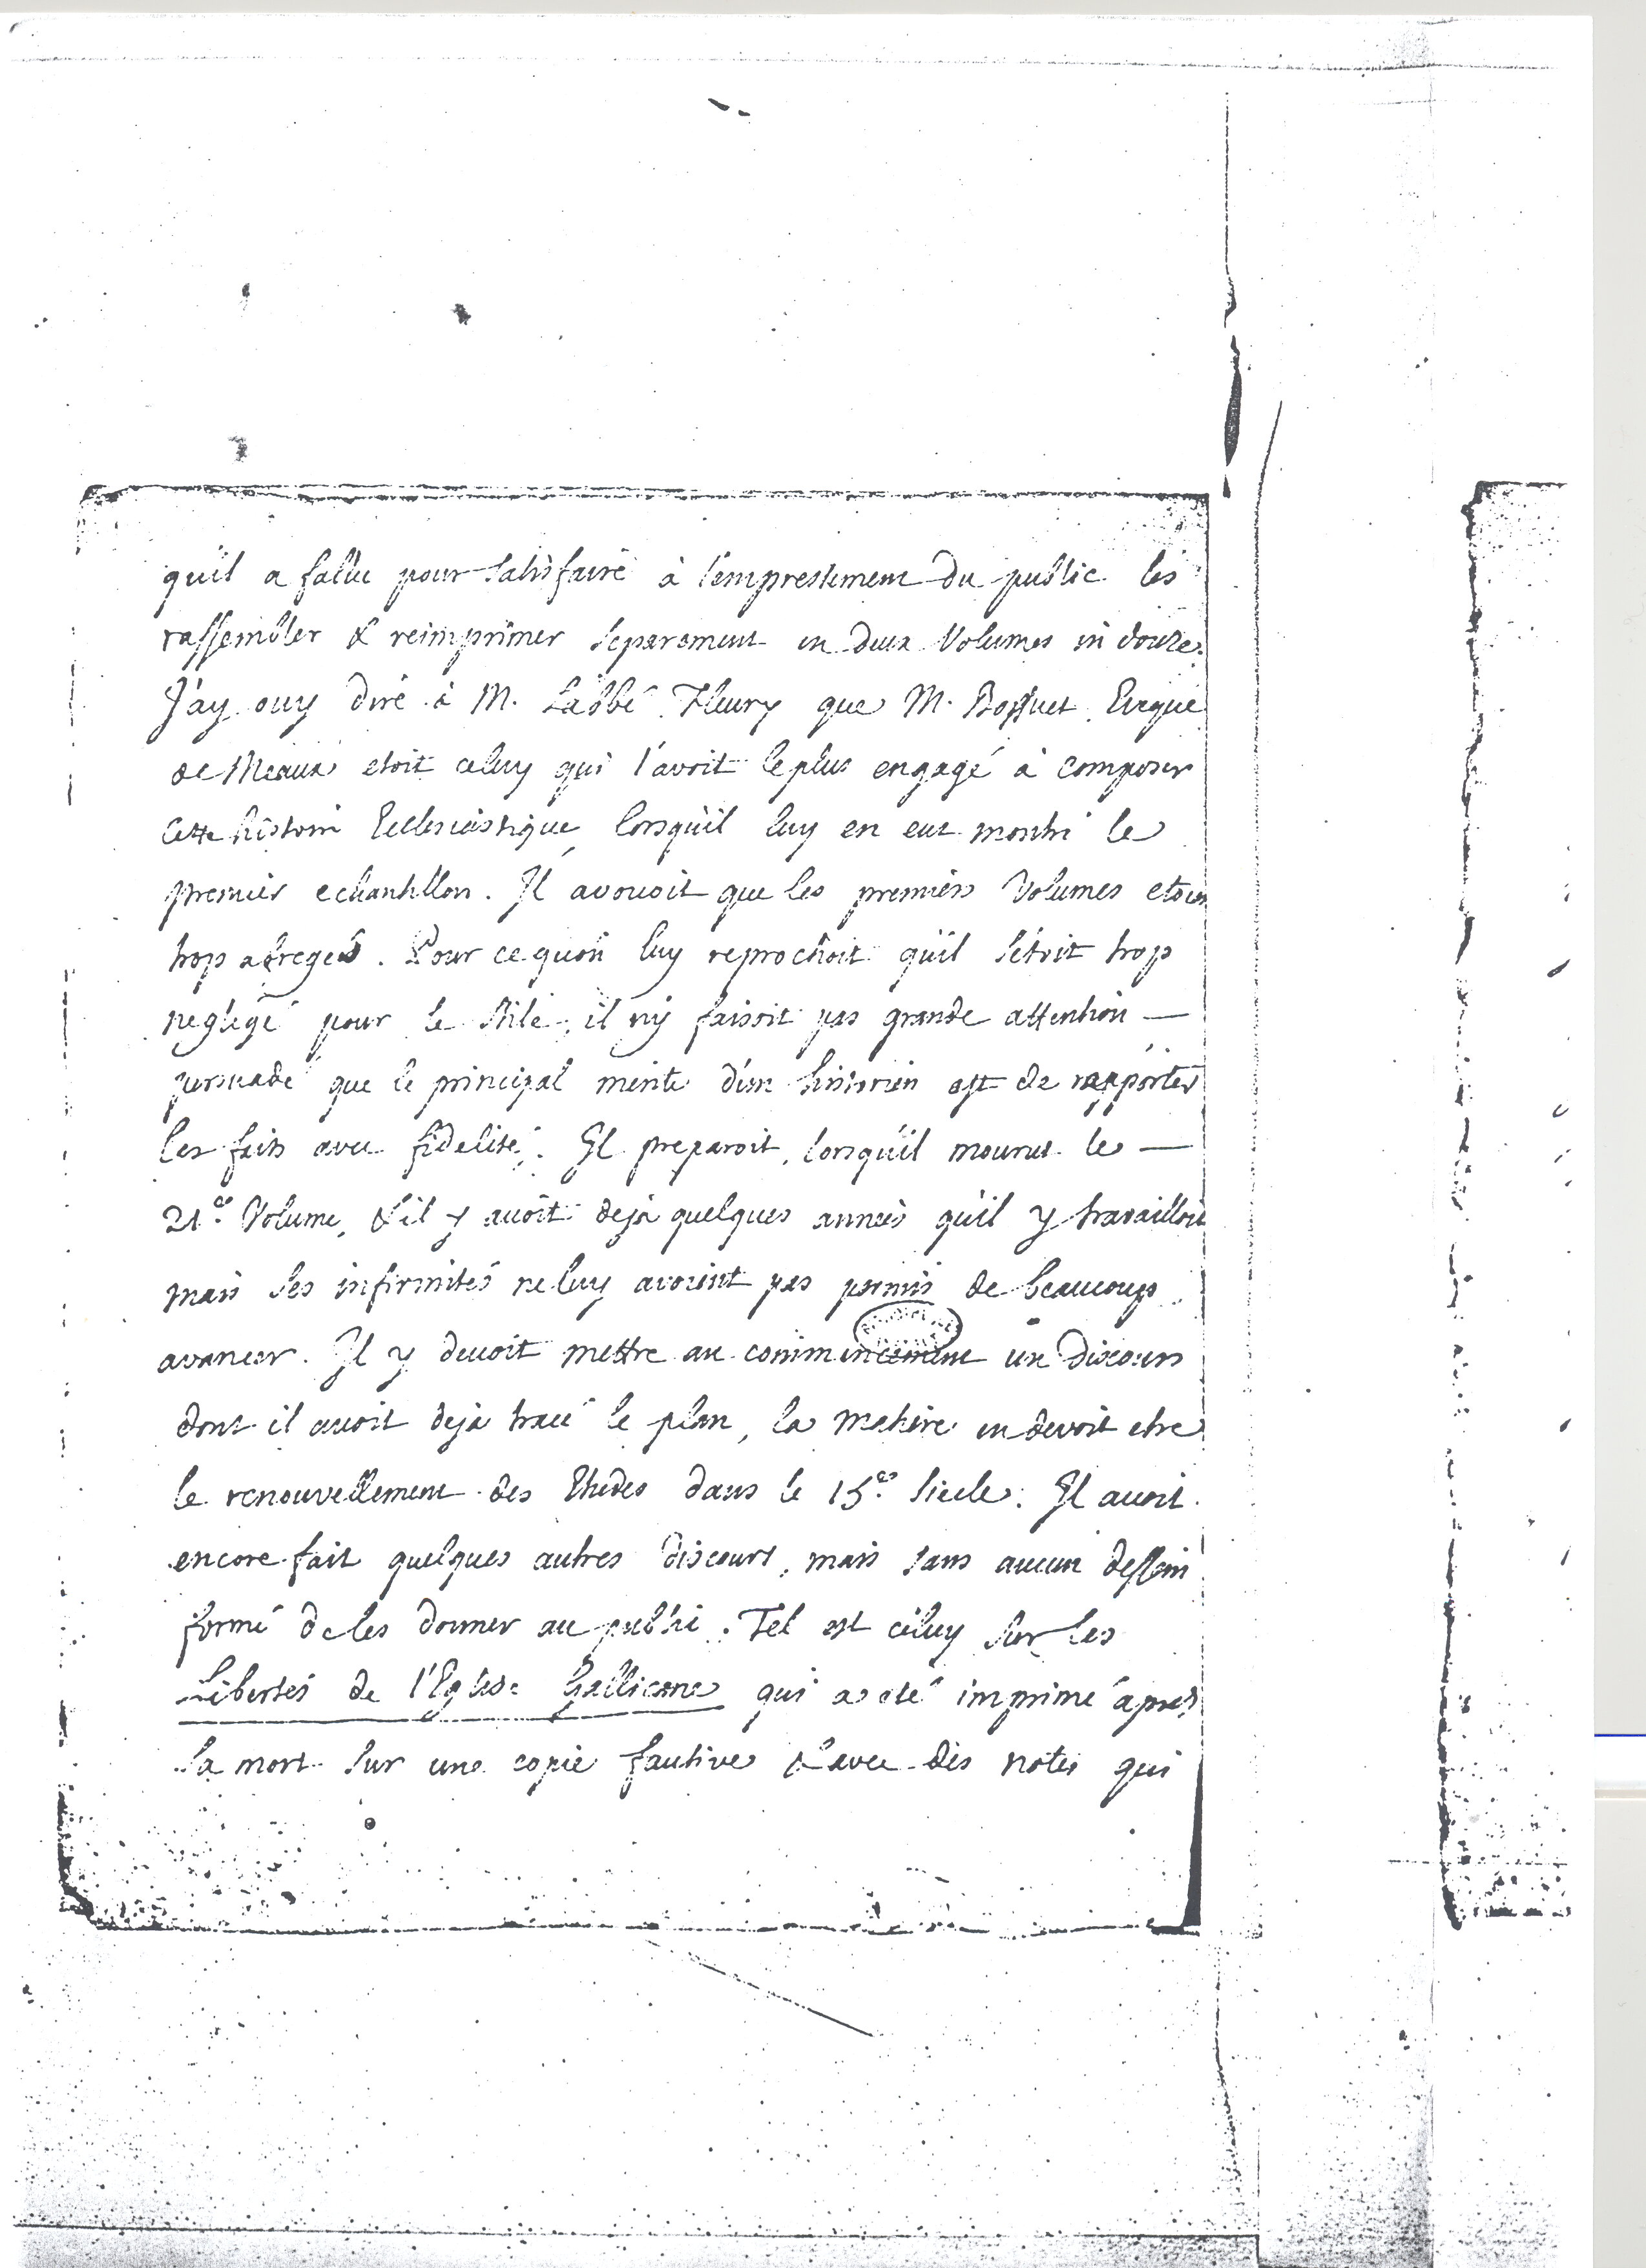 qu'il a fallu pour satisfaire à l'empressement du public les
rassembler & reimprimer separement en deux Volumes in douze.
J'ay ouy dire à M. L'abbé Fleury que M. Bossuet Evêque
de Meaux etoit celuy qui l'avoit le plus engagé à composer
cette histoire Ecclesiastique, lorsqu'il luy en eut montré le
premier echantillon. Il avouoit que les premiers Volumes etoien
trop abregés. Pour ce qu'on luy reprochoit qu'il s'étoit trop
negligé pour le stile, il n'y faisoit pas grande attention —
persuadé que le principal merite d'un historien est de rapporter
les faits avec fidelité. Il preparoit, lorsqu'il mourut le —
21.e Volume, & il y avoit deja quelques années qu'il y travailloit
mais ses infirmités ne luy avoient pas permis de beaucoup
avancer. Il y devoit mettre au commencement un Discours
dont il avoit deja tracé le plan, la matiere en devoit etre
le renouvellement des Etudes dans le 15.e siecle. Il avoit
encore fait quelques autres discours, mais sans aucun dessein
formé de les donner au public. Tel est celuy sur les
Libertés de l'Eglise Gallicane qui a eté imprimé apres
sa mort sur une copie fautive & avec des notes qui